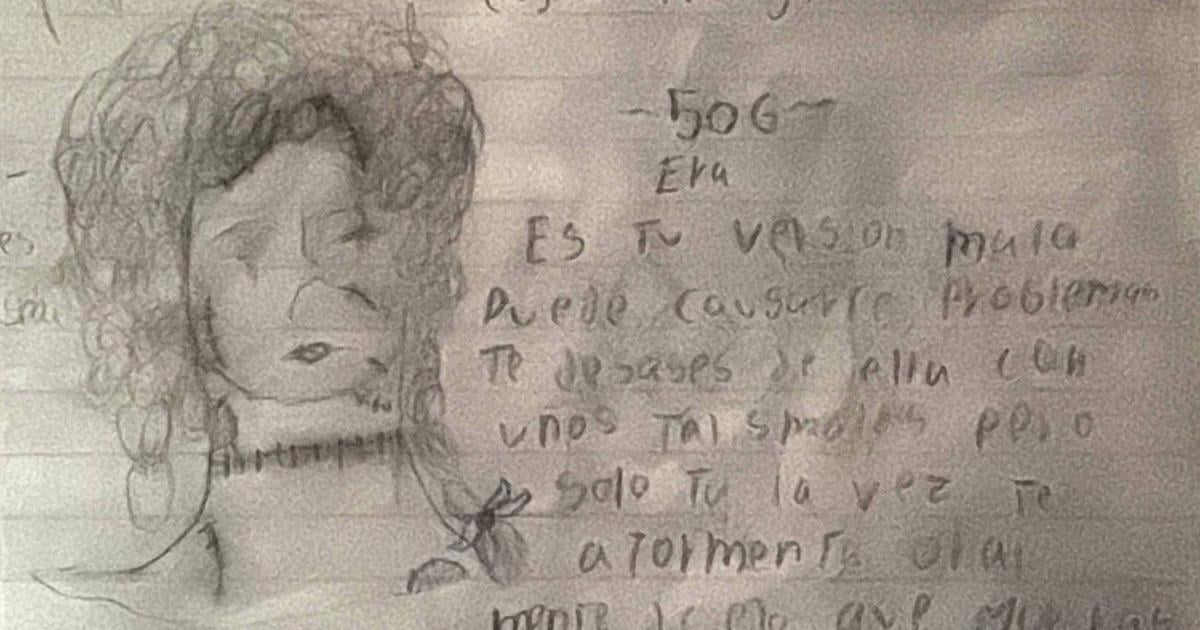 -506-
Era
Es Tu version mala
Puede causarte Problemas
Te desases de ella con
unos Talismanes pero
solo Tu la vez Te
aTormenTa
mente
es